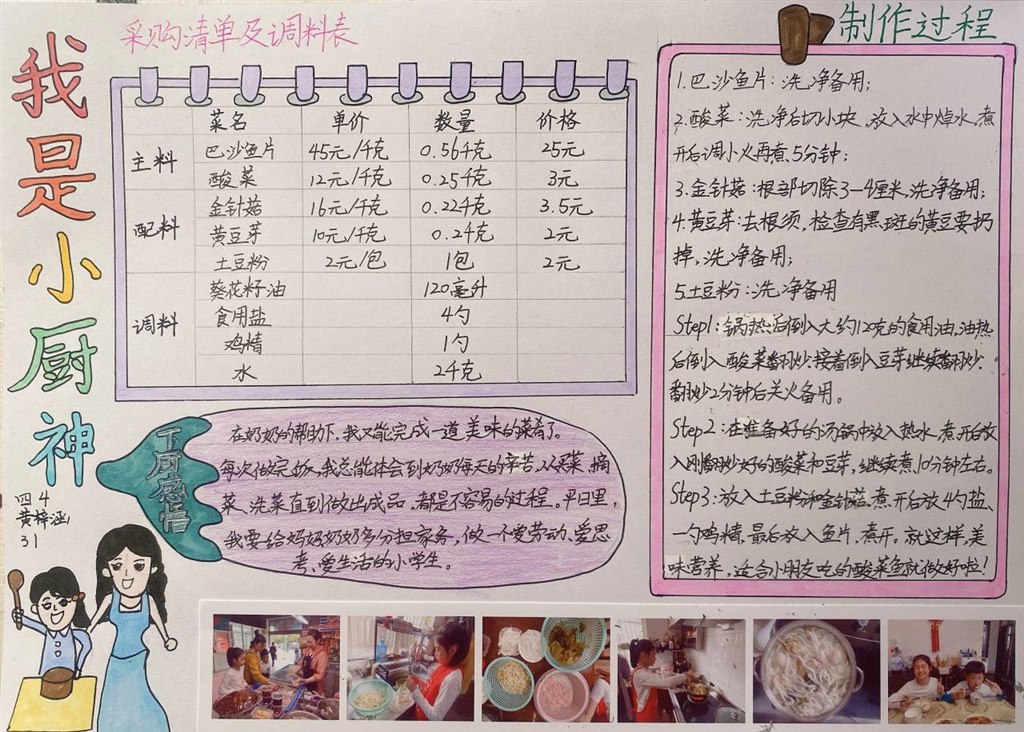 我是小厨神
四4
黄梓涵
31
采购清单及调料表
菜名 单价 数量 价格
主料
巴沙鱼片 45元/千克 0.56千克 25元
酸菜 12元/千克 0.25千克 3元
配料
金针菇 16元/千克 0.22千克 3.5元
黄豆芽 10元/千克 0.2千克 2元
土豆粉 2元/包 1包 2元
调料
葵花籽油 120毫升
食用盐 4勺
鸡精 1勺
水 2千克
下厨感悟
在奶奶的帮助下,我又能完成一道美味的菜肴了。
每次做完饭,我总能体会到奶奶每天的辛苦,从买菜、摘
菜、洗菜直到做出成品,都是不容易的过程。平日里,
我要给妈妈奶奶多分担家务,做一个爱劳动、爱思
考、爱生活的小学生。
制作过程
1.巴沙鱼片:洗净备用;
2.酸菜:洗净后切小块,放入水中焯水,煮
开后调小火再煮5分钟;
3.金针菇:根部切除3-4厘米,洗净备用;
4.黄豆芽:去根须,检查有黑斑的黄豆要扔
掉,洗净备用;
5.土豆粉:洗净备用
Step1:锅热后倒入大约120克的食用油,油热
后倒入酸菜翻炒,接着倒入豆芽继续翻炒.
翻炒2分钟后关火备用。
Step2:在准备好的汤锅中放入热水,煮开后放
入刚翻炒好的酸菜和豆芽,继续煮10分钟左右。
Step3:放入土豆粉和金针菇,煮开后放4勺盐、
一勺鸡精,最后放入鱼片,煮开,就这样,美
味营养,适合小朋友吃的酸菜鱼就做好啦!